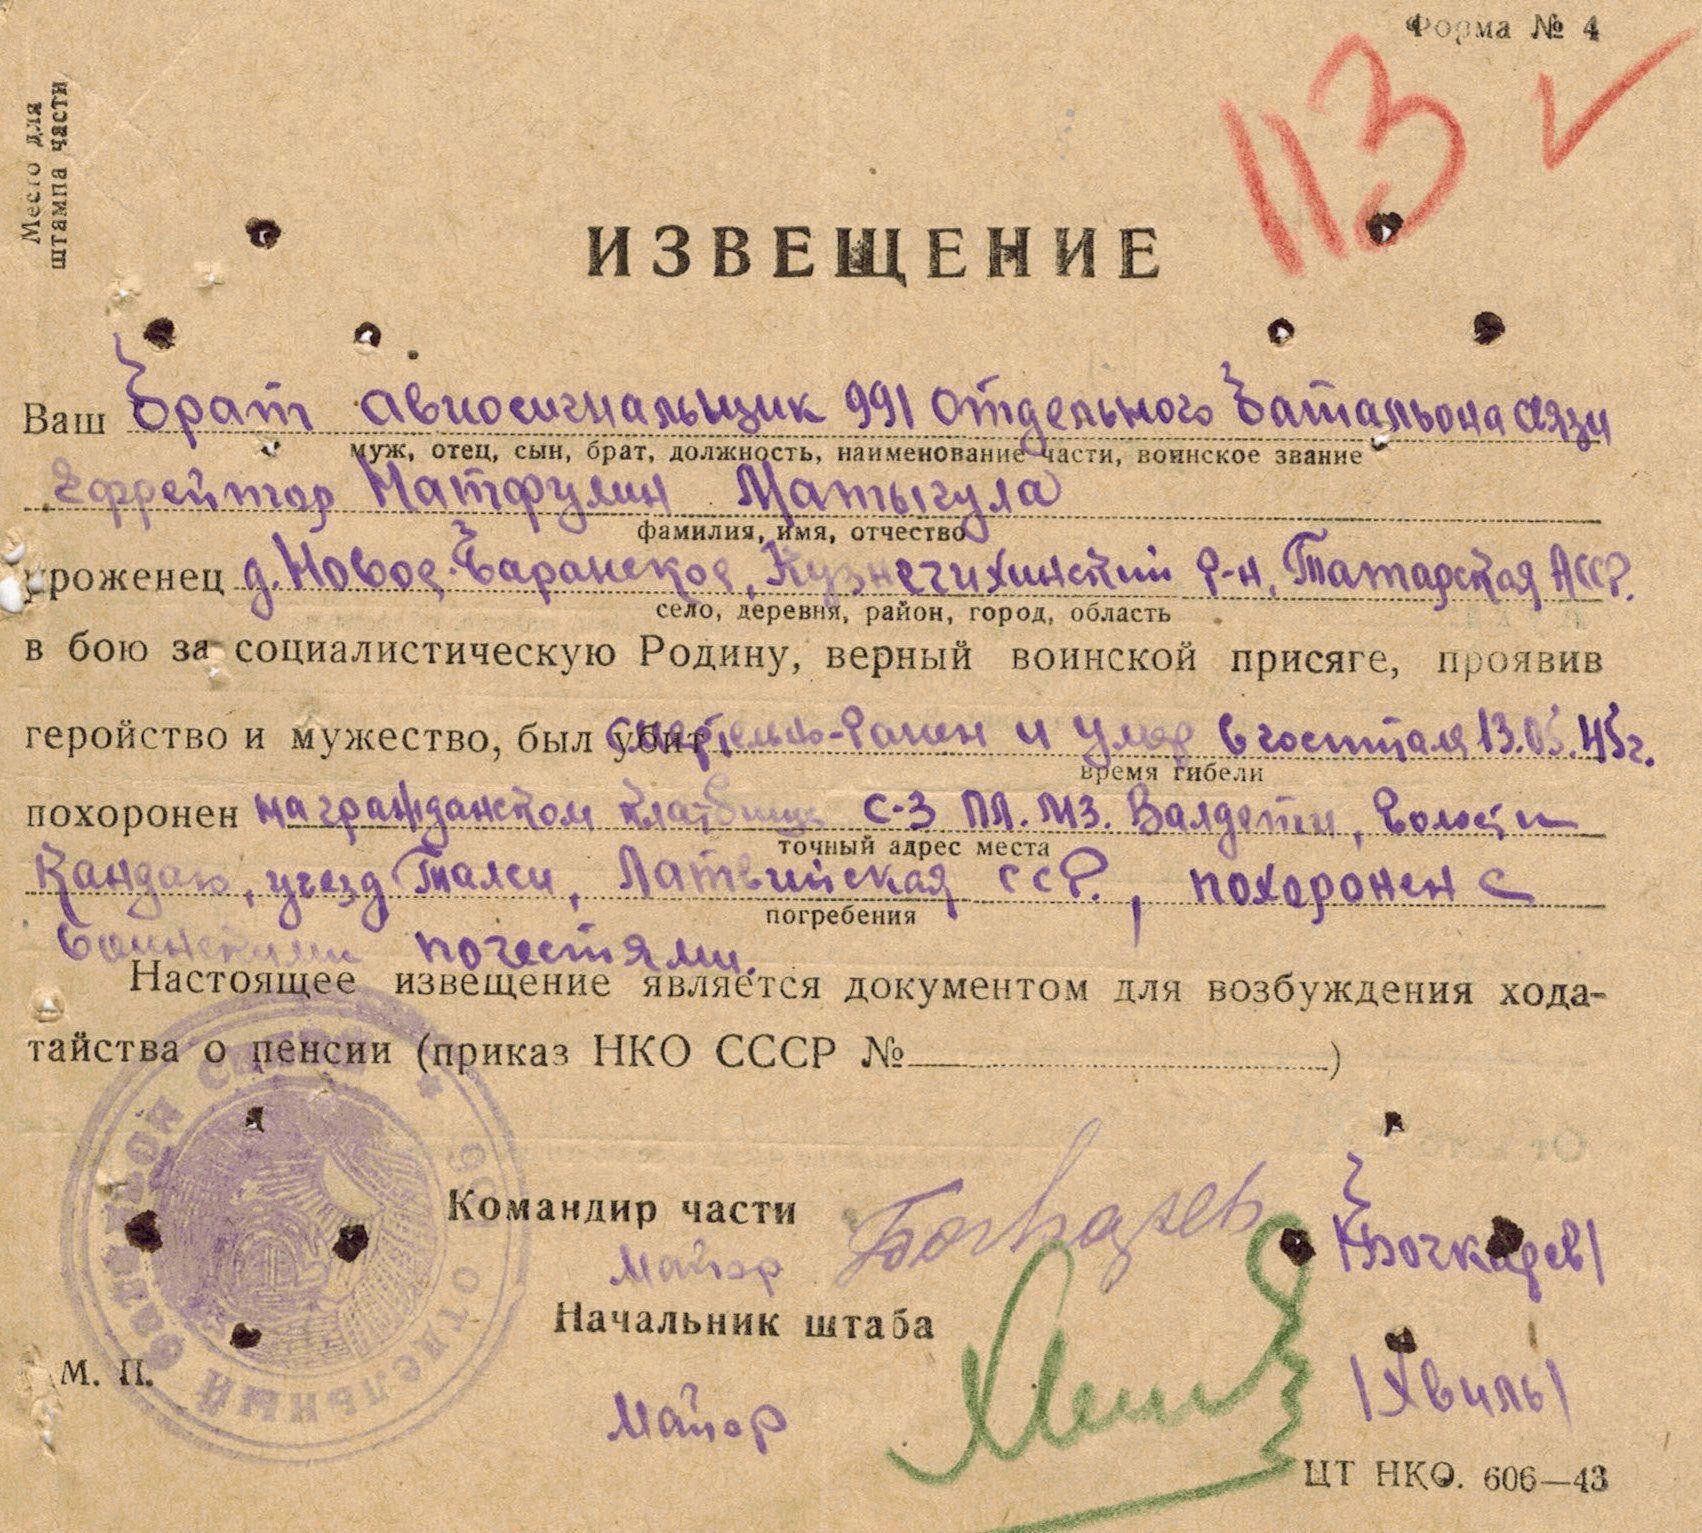 Форма № 4
113
Место для
штампа части
ИЗВЕЩЕНИЕ
Ваш брат авиосигнальщик 991 отдельного батальона связи
муж, отец, сын, брат, должность, наименование части, воинское звание
Ефрейтор Матыгула
фамилия, имя, отчество
уроженец д. Новое-Баранское, Кузнечихинский р-н, Татарская АССР.
село, деревня, район, город, область
в бою за социалистическую Родину, верный воинской присяге, проявив
геройство и мужество, был убит, смертельно-ранен и умер в госпитале 13.05.45г.
время гибели
похоронен на гражданском кладбище С-З пл. мз. Валдеги, волости
точный адрес места
Кандаю, уезд Талси, Латвийская ССР., похоронен с
погребения
воинскими почестями.
Настоящее извещение является документом для возбуждения хода-
тайства о пенсии (приказ НКО СССР № )
Командир части
Майор /Бочкарев/
Начальник штаба
Майор /Хвиль/
М. П.
991 ОТДЕЛЬНЫЙ БАТАЛЬОН СВЯЗИ
ЦТ НКО. 606—43